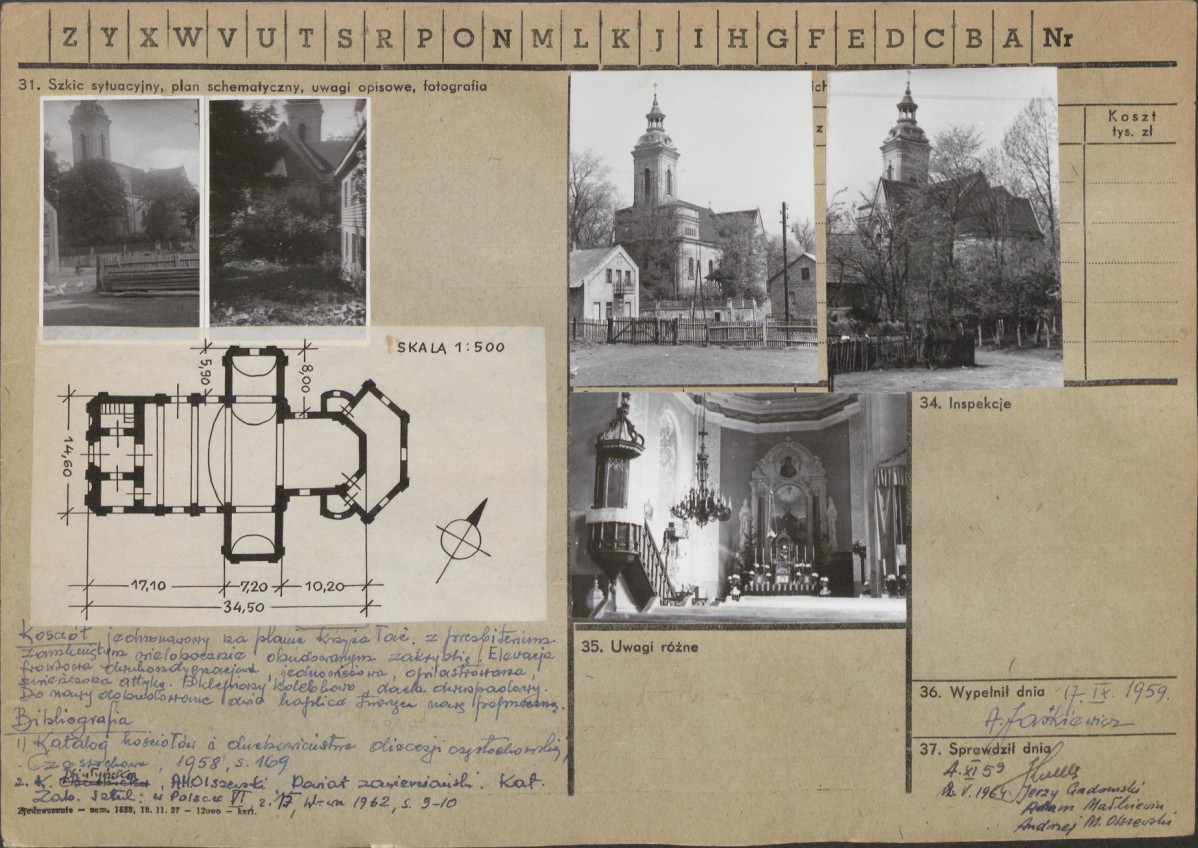 Z Y X W V U T S R P O N M L K J I H G F E D C B A Nr
31. Szkic sytuacyjny, plan schematyczny, uwagi opisowe, fotografia
Koszt
tys. zł
SKALA 1:500
5,90
8,00
14,60
17,10
7,20
10,20
34,50
Kościół jednonawowy na planie krzyża łac. z prezbiterium
zamkniętym wielobocznie obudowanym zakrystią. Elewacja
frontowa dwukondygnacjowa, jednoosiowa, opilastrowana,
zwieńczona attyką. Sklepienia kolebkowe, dach dwuspadowy.
Do nawy dobudowane dwie kaplice tworzą nawę poprzeczną.
Bibliografia
1) Katalog kościołów i duchowieństwa diecezji częstochowskiej,
Częstochowa, 1958, s. 169
2. K. , A.M. Olszewski, Powiat zawierciański. Kat.
Zab. Sztuki w Polsce VI z. 15, W-wa 1962, s. 9-10
Zjednoczenie - zam. 1658, 16. 11. 57 - 12000 - kart.
34. Inspekcje
35. Uwagi różne
36. Wypełnił dnia 17. IX. 1959.
A. Jaśkiewicz
37. Sprawdził dnia
4. XI 59
V. 1964 Jerzy Gadomski
Adam Małkiewicz
Andrzej M. Olszewski